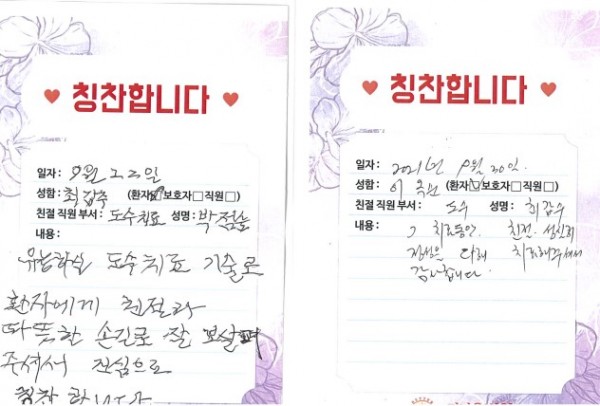 칭찬합니다
일자: 9월 22일
성함: 최갑죽 (환자☑보호자□직원□)
친절 직원 부서: 도수치료 성명: 박점놀
내용:
유능하신 도수치료 기술로
환자에게 친절과
따뜻한 손길로 잘 보살펴
주셔서 진심으로
칭찬합니다
칭찬합니다
일자: 2021년 9월 30일.
성함: 이 (환자☑보호자□직원□)
친절 직원 부서: 도수 성명:
내용: 치료동안 친절. 성실히
정성을 다해 치료해주셔서
감사합니다.